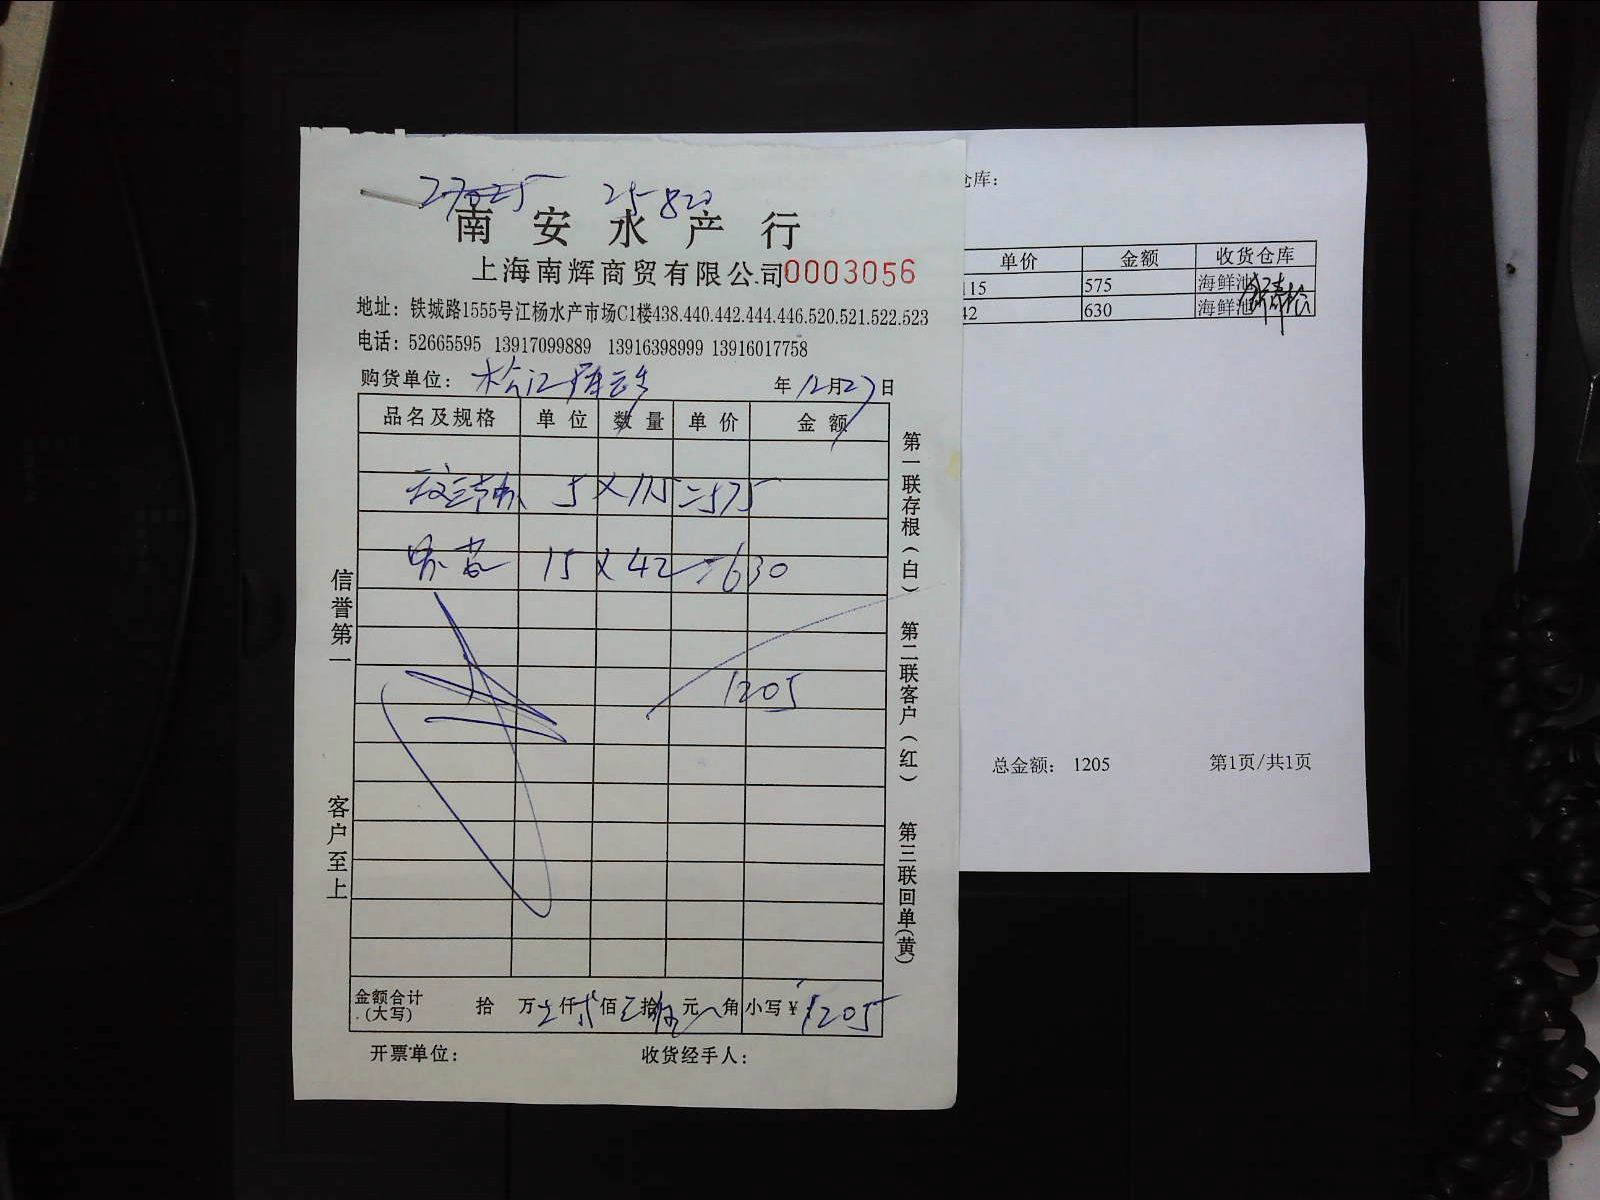 27025 25-820
南安水产行
上海南辉商贸有限公司0003056
地址：铁城路1555号江杨水产市场C1楼438.440.442.444.446.520.521.522.523
电话：52665595 13917099889 13916398999 13916017758
购货单位：松江 年12月27日
品名及规格 单位 数量 单价 金额
5×115=575
15×42=630
1205
金额合计（大写） 拾 万 仟 佰 拾 元 角 小写￥1205
开票单位： 收货经手人：
信誉第一
客户至上
第一联存根（白）
第二联客户（红）
第三联回单（黄）
仓库：
单价 金额 收货仓库
115 575 海鲜池
42 630 海鲜池
总金额： 1205 第1页/共1页